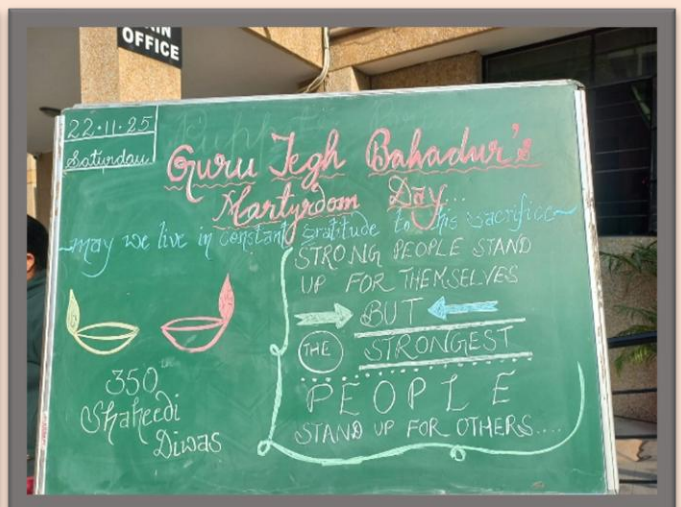 OFFICE
22.11.25
Saturday
Guru Tegh Bahadur's
Martyrdom Day...
may we live in constant gratitude to his sacrifice
STRONG PEOPLE STAND
UP FOR THEMSELVES
BUT
THE STRONGEST
PEOPLE
STAND UP FOR OTHERS....
350
Shaheedi
Diwas